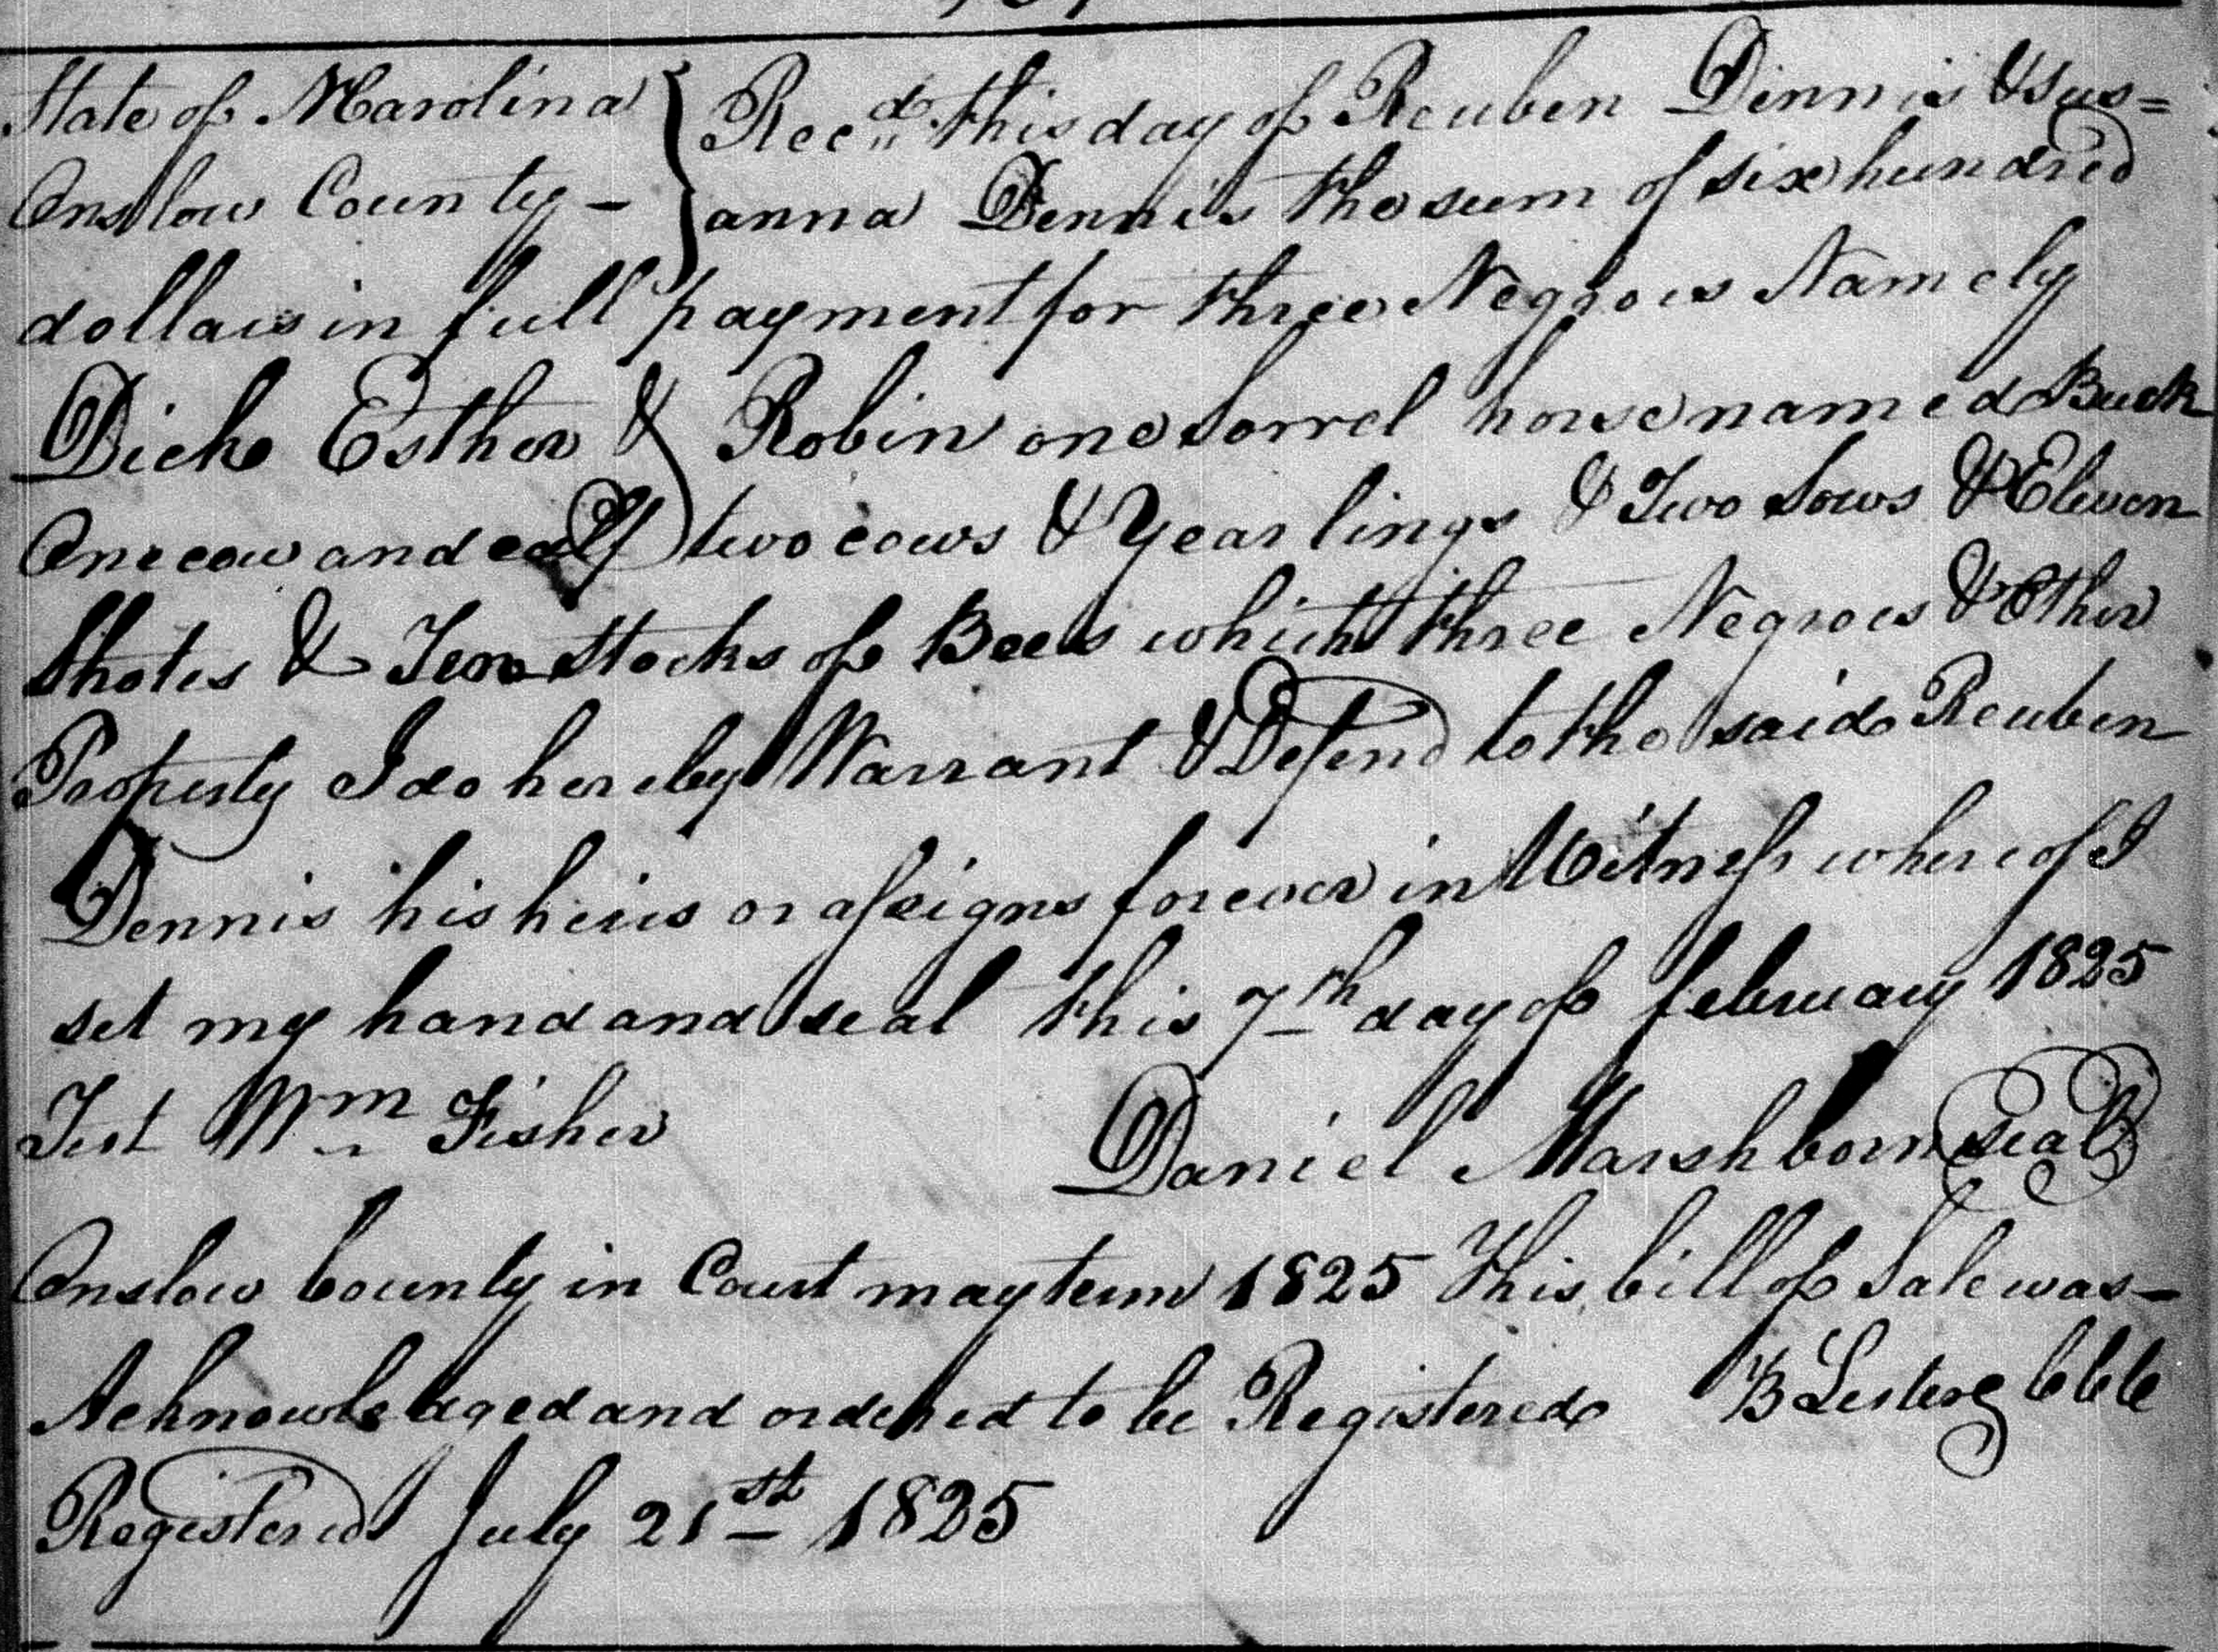 State of NCarolina } Recd. this day of Reuben Dennis & Sus=
Onslow County – } anna Dennis the sum of six hundred
dollars in full payment for three Negroes Namely
Dick Esther & Robin one sorrel horse named Buck
One cow and calf two cows & Yearlings & Two Sows & Eleven
Shotes & Ten Stocks of Bees which three Negroes & Other
Property I do hereby Warrant & Defend to the said Reuben
Dennis his heirs or assigns forever in Witness whereof I
set my hand and seal this 7th day of february 1825
Test Wm Fisher Daniel Marshborn seal
Onslow County in Court may term 1825 This bill of Sale was
Acknowledged and ordered to be Registered B Lester CCC
Registered July 21st 1825